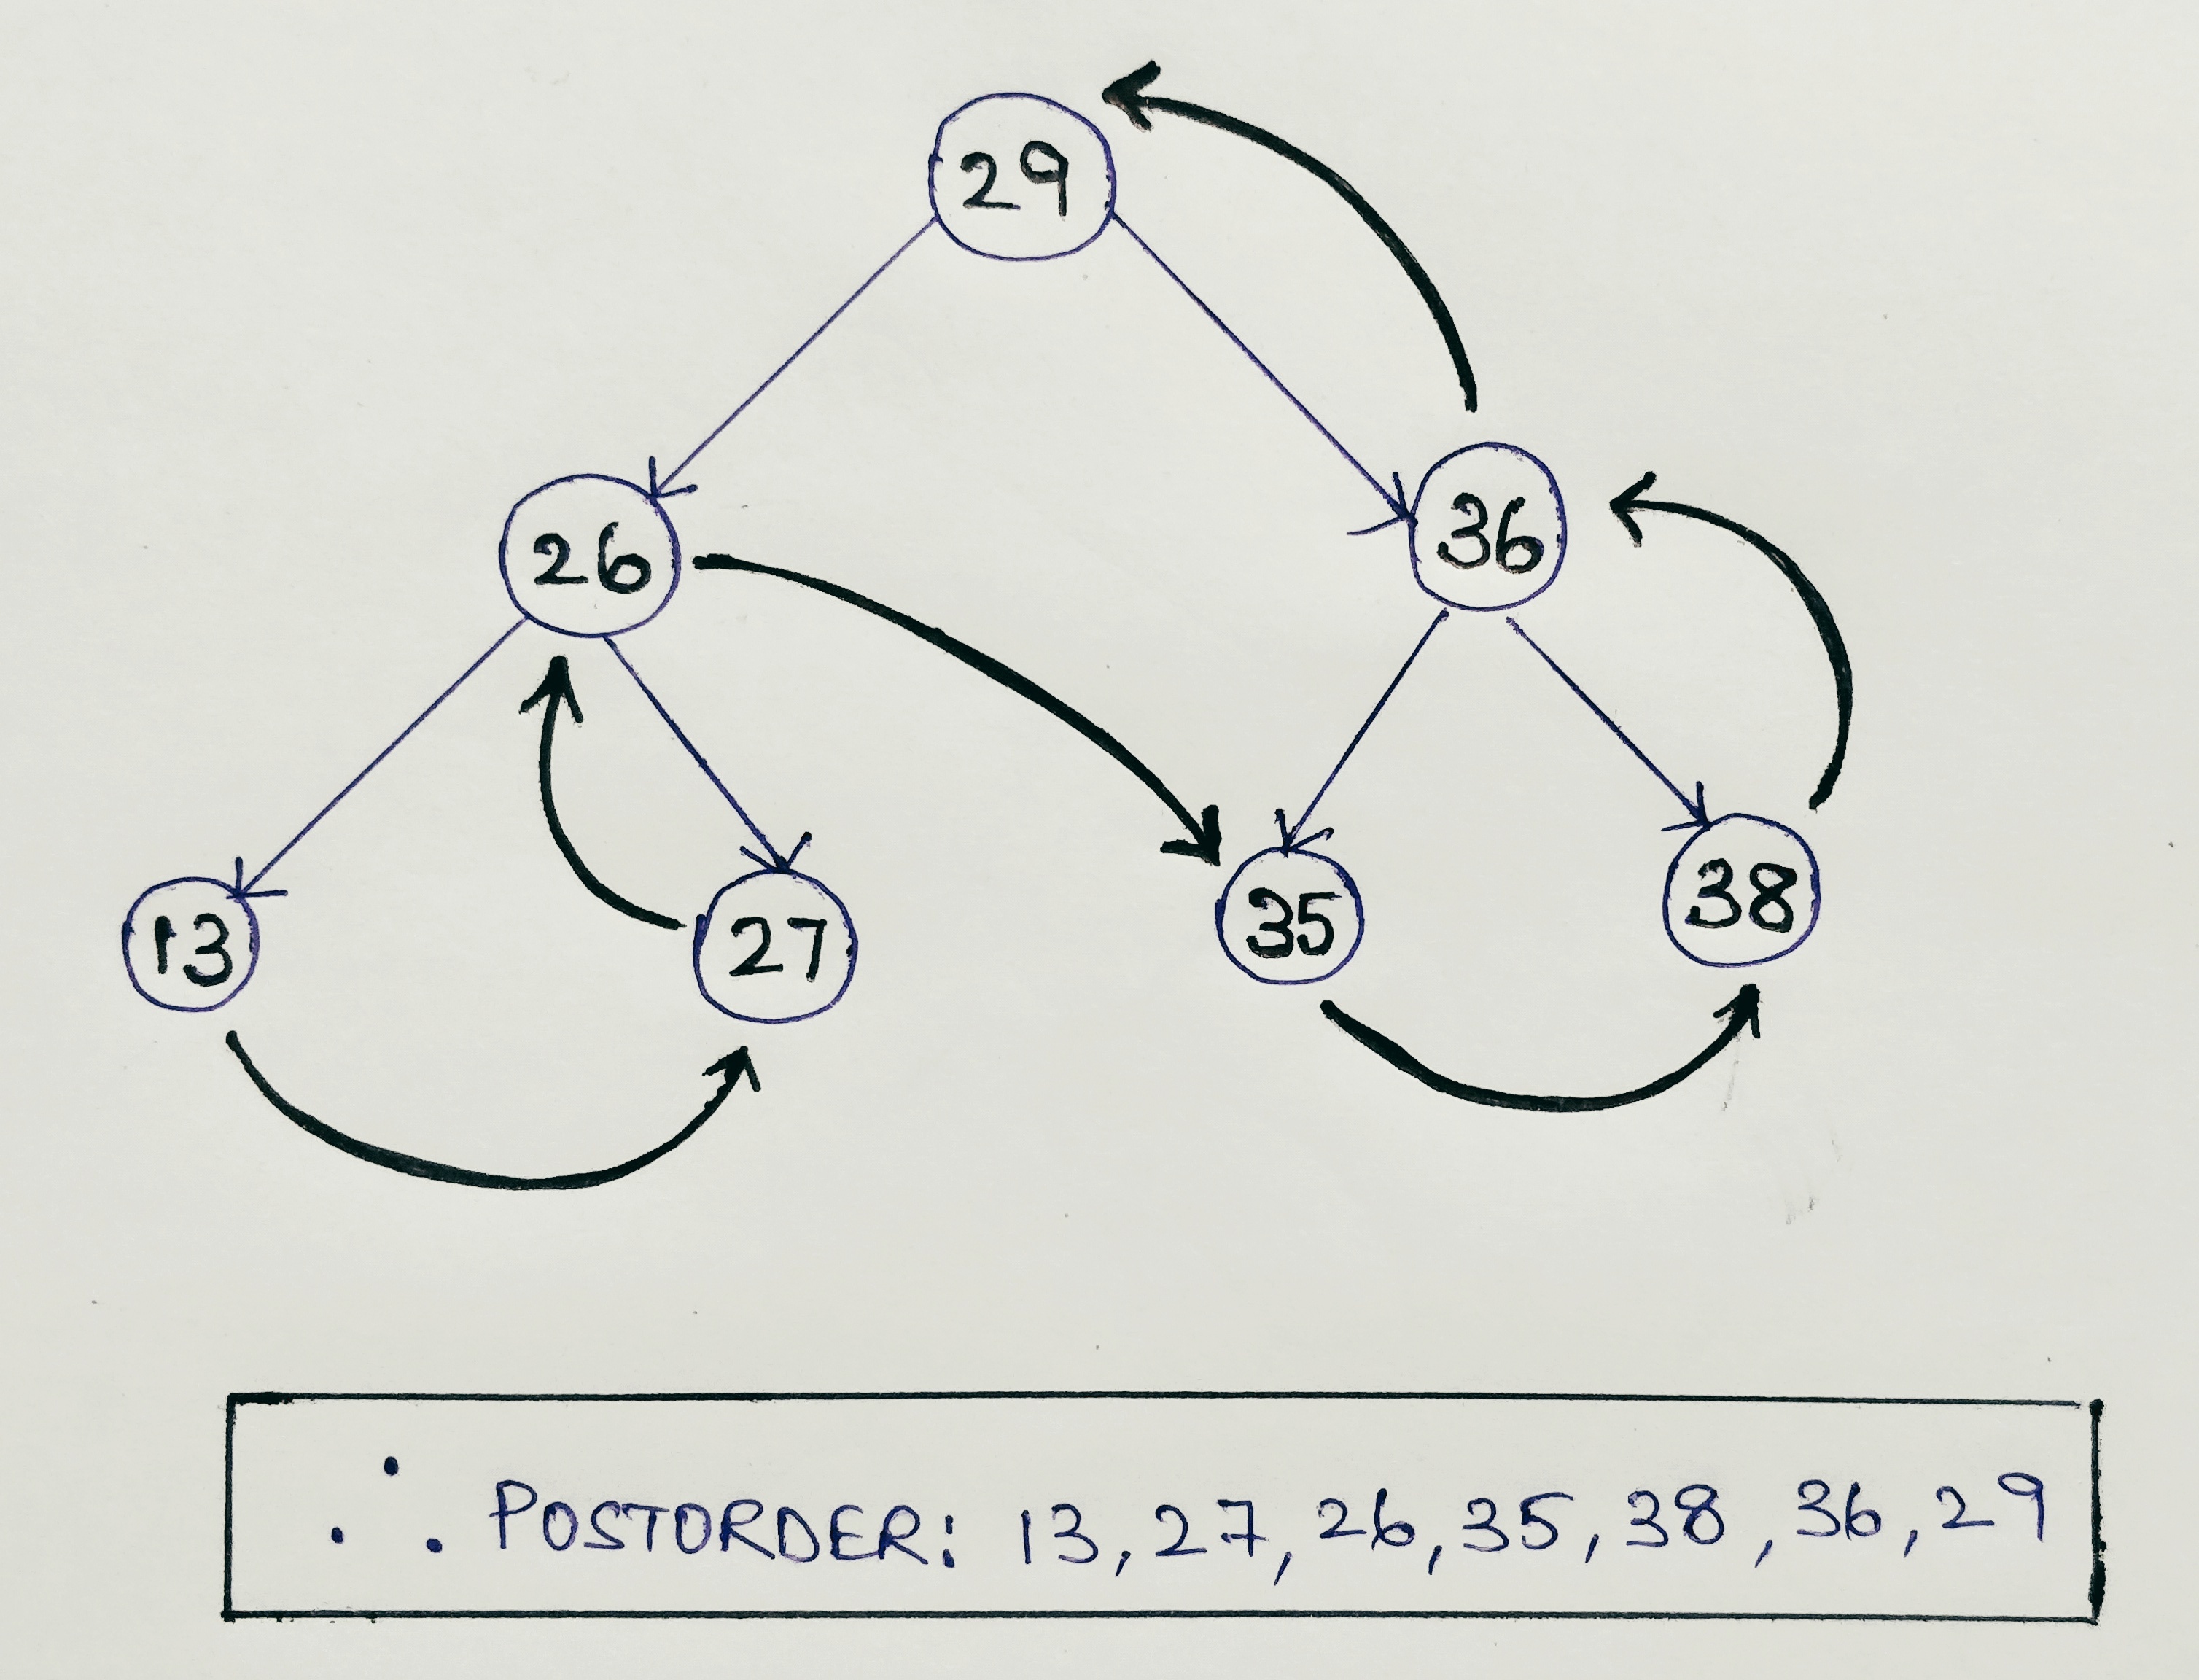 29
26
36
13
27
35
38
∴ POSTORDER: 13, 27, 26, 35, 38, 36, 29